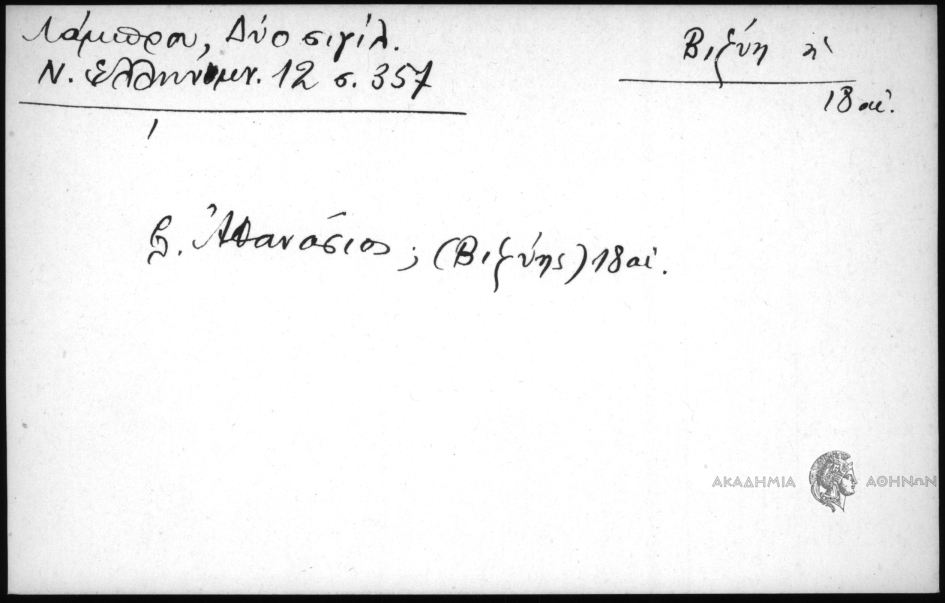 Λάμπρου, Δύο σιγίλ.
Ν. Ἑλληνομν. 12 σ. 357
Βιζύη ἡ
18 αἰ.
Ἀθανάσιος; (Βιζύης) 18 αἰ.
ΑΚΑΔΗΜΙΑ ΑΘΗΝΩΝ